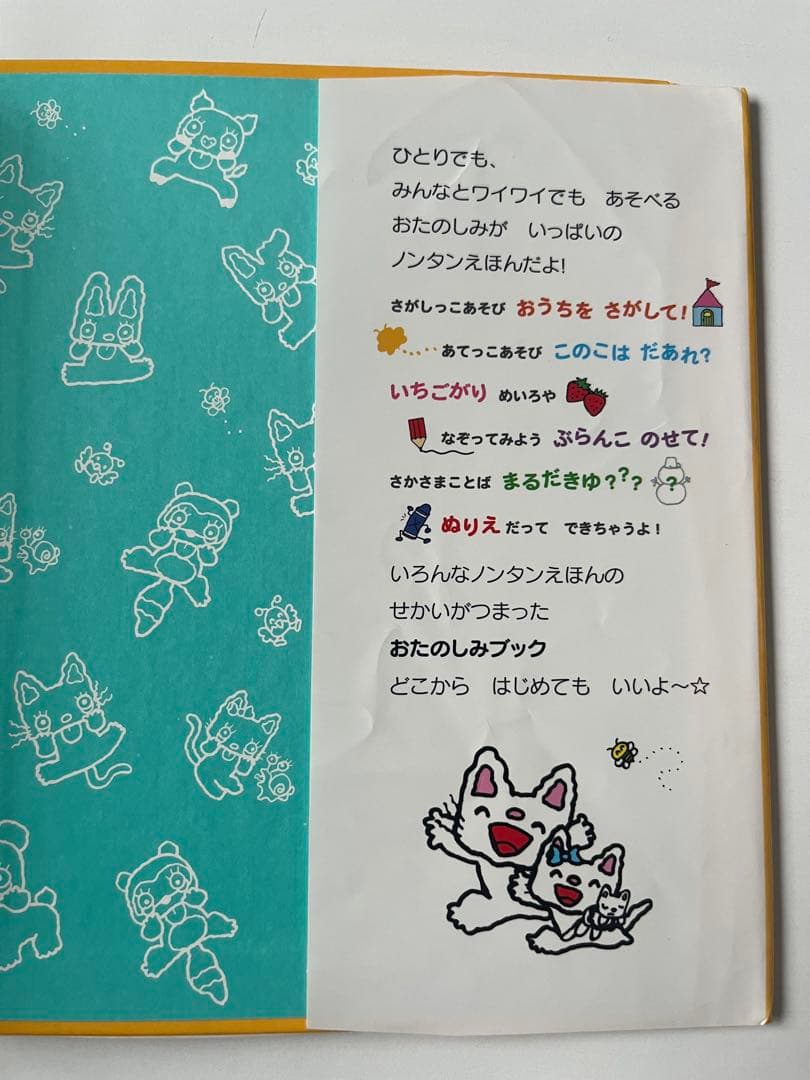 ひとりでも、
みんなとワイワイでも　あそべる
おたのしみが　いっぱいの
ノンタンえほんだよ!
さがしっこあそび おうちを さがして!
あてっこあそび このこは だあれ?
いちごがり めいろや
なぞってみよう ぶらんこ のせて!
さかさまことば まるだきゆ??? ?
ぬりえ だって　できちゃうよ!
いろんなノンタンえほんの
せかいがつまった
おたのしみブック
どこから　はじめても　いいよ〜☆